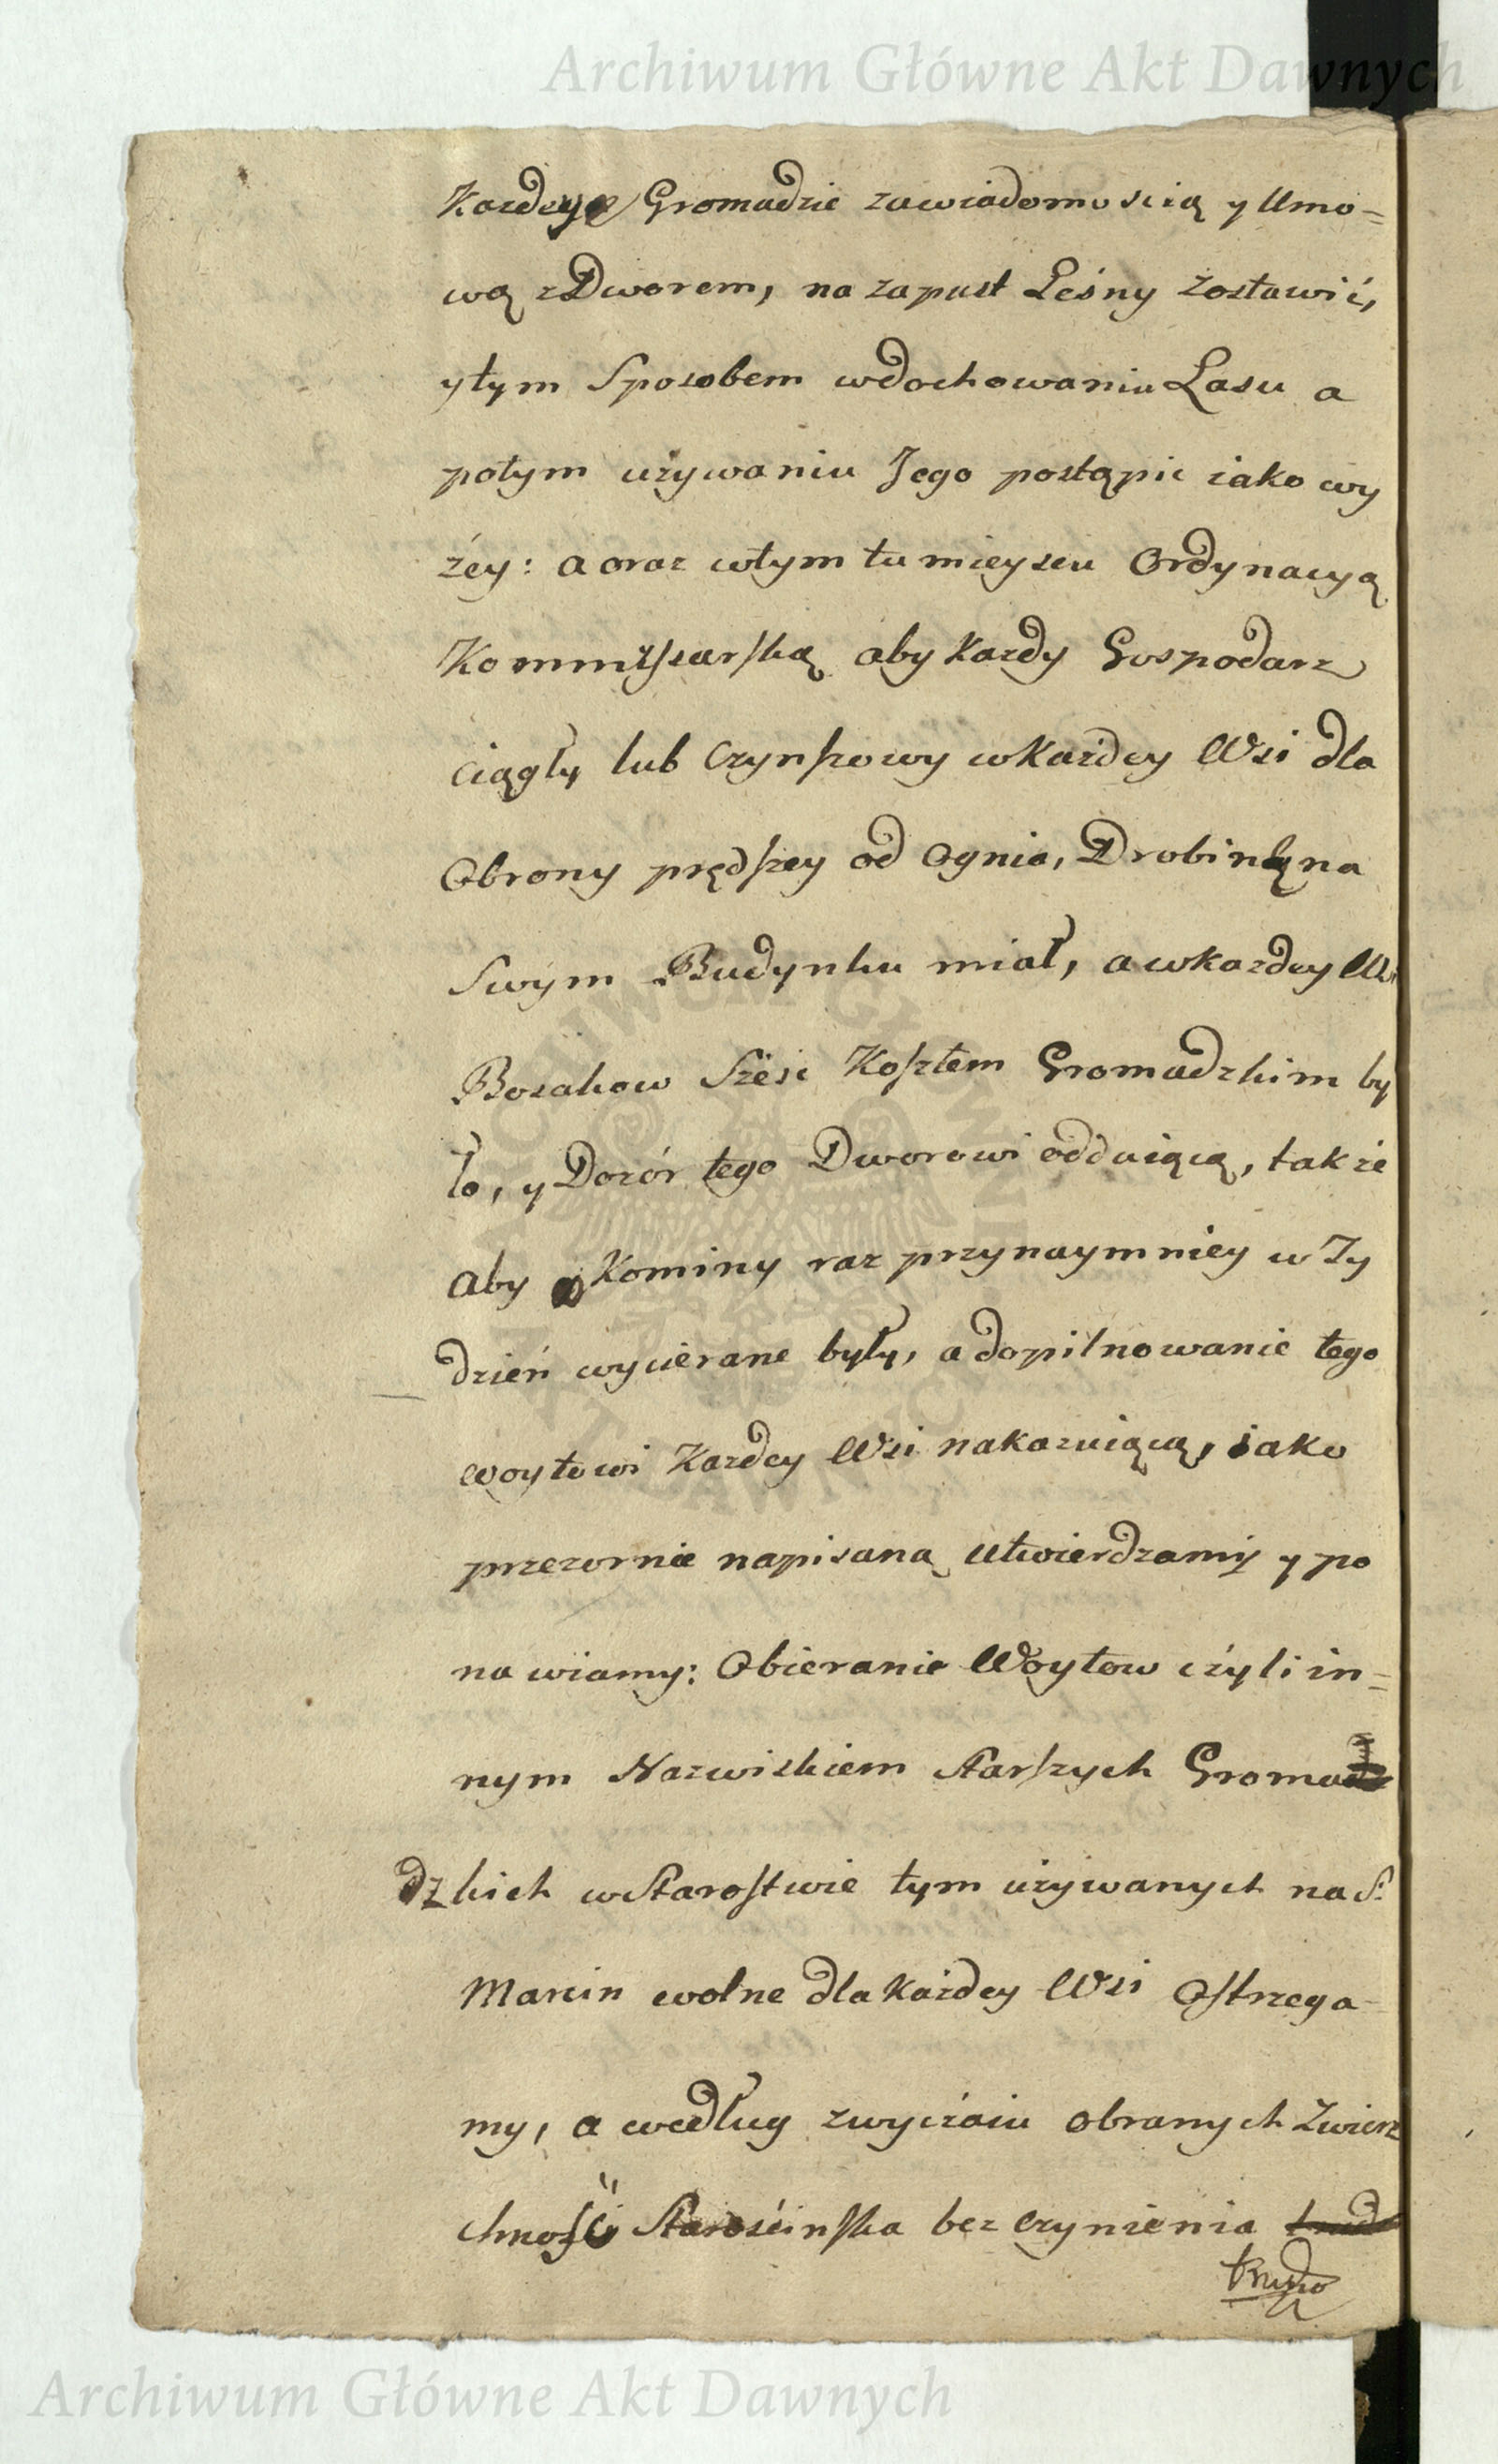 Archiwum Główne Akt Dawnych
Kazdey Gromadzie zawiadomoscią y Umo=
wą z Dworem, na zapust Leśny zostawić,
y tym Sposobem w dochowaniu Lasu a
potym używaniu Jego postąpic iako wy
źey: a oraz w tym tu mieyscu Ordynacyą
Kommissarską aby Kazdy Gospodarz
ciągły lub Czynszowy w Każdey Wsi dla
Obrony prędszey od Ognia, Drobinkę na
Swym Budynku miał, a w kazdey Wsi
Bosakow Sześc Kosztem Gromadzkim by
ło, y Dozór tego Dworowi oddaiącą, takze
aby Kominy raz przynaymniey w Ty
dzień wycierane były, a dopilnowanie tego
Woytowi Kazdey Wsi nakazuiącą, iako
przezornie napisaną utwierdzamy y po
nawiamy: Obieranie Woytow czyli in=
nym Nazwiskiem Starszych Groma
dzkich w Starostwie tym używanych na S.
Marcin wolne dla Każdey Wsi Ostrzega-
my, a według zwyczaiu obranych Zwierz
chność Starościnska bez czynienia
trudno
Archiwum Główne Akt Dawnych